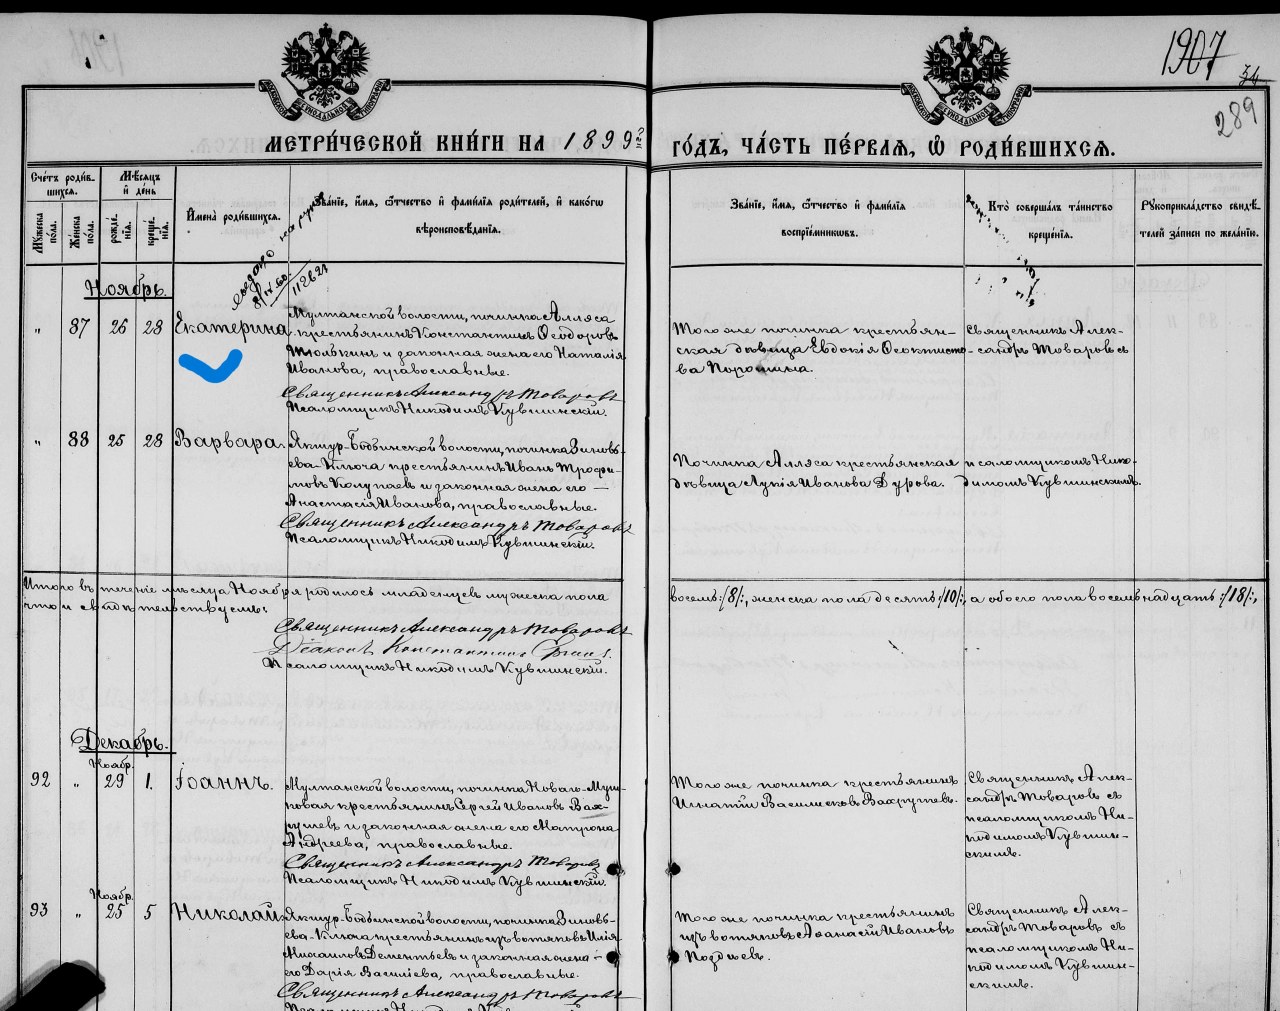 1907
34
289
МЕТРИ́ЧЕСКОЙ КНИ́ГИ НА 1899й
ГО́ДЪ, ЧА́СТЬ ПЕ́РВАЯ, Ѿ РОДИ́ВШИХСЯ.
Сче́тъ роди́в-
шихся.
Му́жеска по́ла.
Же́нска по́ла.
Мѣ́сяцъ
и де́нь
рожде́нія.
креще́нія.
Имена̀ роди́вшихся.
Зва́ніе, и́мя, ѻ́тчество и фами́лія роди́телей, и како́гѡ
вѣроисповѣ́данія.
Зва́ніе, и́мя, ѻ́тчество и фами́лія
воспріе́мникѡвъ.
Кто̀ соверша́лъ та́инство
креще́нія.
Рꙋкоприкла́дство свидѣ́-
телей за́писи по жела́нію.
Ноябрь.
" 87 26 28 Екатерина
Мултанской волости, починка Алляса
крестьянинъ Константинъ Ѳеодоровъ
Тюлькинъ и законная жена его Наталія
Иванова, православные.
Священникъ Александръ Товаровъ
Псаломщикъ Никодимъ Кувшинскій.
Того же починка крестьян-
ская дѣвица Евдокія Ѳеоктисто-
ва Порошина.
Священникъ Алек-
сандръ Товаровъ съ
" 88 25 28 Варвара.
Якшур-Бодьинской волости, починка Зиновь-
ева-Ключа крестьянинъ Иванъ Трофи-
мовъ Колупаев и законная жена его —
Анастасія Иванова, православные.
Священникъ Александръ Товаровъ
Псаломщикъ Никодимъ Кувшинскій.
Починка Алляса крестьянская
дѣвица Лукія Иванова Дурова.
псаломщикомъ Нико-
димомъ Кувшинскимъ.
Итого въ теченіе мѣсяца Ноября родилось младенцевъ мужеска пола
восемь:/8/:, женска пола десять:/10/:, а обоего пола восемьнадцать:/18/:,
что и свидѣтельствуемъ:
Священникъ Александръ Товаровъ
Діаконъ Константинъ
Псаломщикъ Никодимъ Кувшинскій.
Декабрь.
Ноябр.
92 " 29 1. Іоаннъ.
Мултанской волости, починка Новаго-Муш-
ковая крестьянинъ Сергѣй Ивановъ Вах-
рушевъ и законная жена его Матрона
Андреева, православные.
Священникъ Александръ Товаровъ
Псаломщикъ Никодимъ Кувшинскій.
Того же починка крестьянинъ
Игнатій Васильевъ Вахрушевъ.
Священникъ Алек-
сандръ Товаровъ съ
псаломщикомъ Ни-
кодимомъ Кувшин-
скимъ.
Ноябр.
93 " 25 5 Николай
Якшур-Бодьинской волости, починка Зиновь-
ева-Ключа крестьянинъ изъ вотяковъ Илія
Михаиловъ Дементьевъ и законная жена —
его Дарія Василіева, православные.
Священникъ Александръ Товаровъ
Того же починка крестьянинъ
изъ вотяковъ Аѳанасій Ивановъ
Поздѣевъ.
Священникъ Алек-
сандръ Товаровъ съ
псаломщикомъ Ни-
кодимомъ Кувшин-
скимъ.